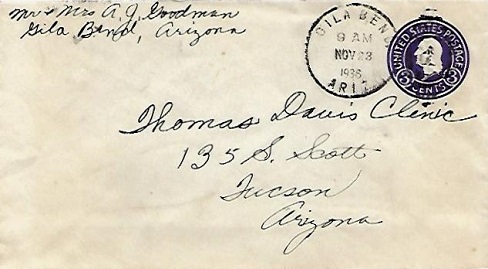 Mr & Mrs A. J. Goodman
Gila Bend, Arizona
GILA BEND
9 AM
NOV 23
1936
ARIZ.
UNITED STATES POSTAGE
3 CENTS 3
Thomas Davis Clinic
135 S. Scott
Tucson
Arizona